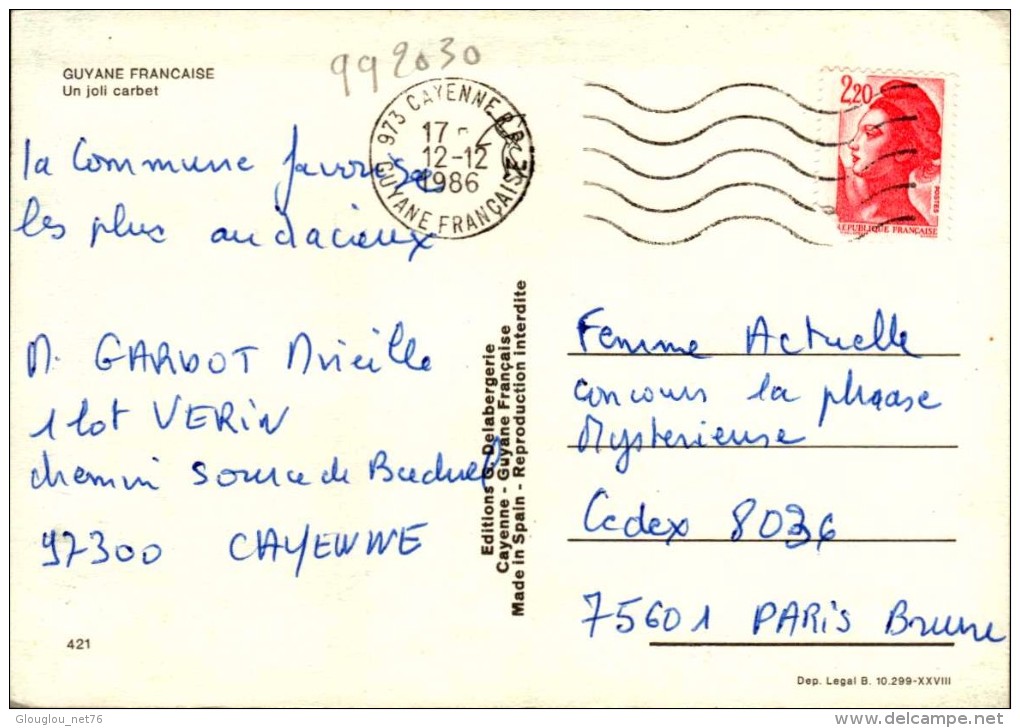 GUYANE FRANCAISE
Un joli carbet
992030
973 CAYENNE R.P.
17 -
12-12
1986
GUYANE FRANÇAISE
2,20
POSTES
REPUBLIQUE FRANÇAISE
la Commune favorise
les plus audacieux
M. GARDOT Mireille
1 lot VERIN
chemin source de Baduel
97300 CAYENNE
421
Editions G. Delabergerie
Cayenne - Guyane Française
Made in Spain - Reproduction interdite
Femme Actuelle
concours la phrase
Mysterieuse
Cedex 8036
75601 PARIS Brune
Dep. Legal B. 10.299-XXVIII
Glouglou_net76
© delcampe.net